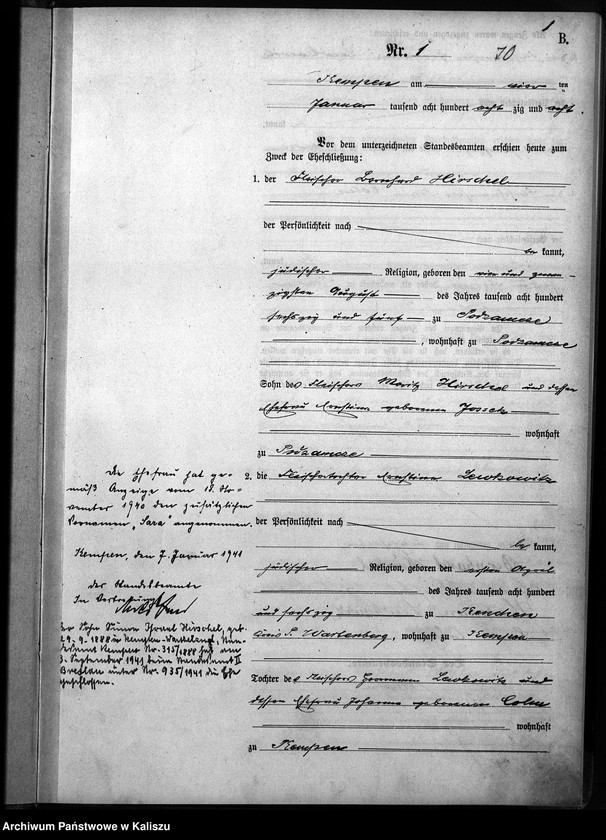 1
B.
Nr. 1 70
Kempen am vier ten
Januar tausend acht hundert acht zig und acht
Vor dem unterzeichneten Standesbeamten erschien heute zum
Zweck der Eheschließung:
1. der Fleischer Bernhard Hirschel
der Persönlichkeit nach
be kannt,
jüdischer Religion, geboren den vier und zwan-
zigsten August des Jahres tausend acht hundert
sechszig und fünf zu Podzamcze
, wohnhaft zu Podzamcze
Sohn des Fleischers Moritz Hirschel und dessen
Ehefrau Ernstine geborenen Josek
wohnhaft
zu Podzamcze
2. die Fleischertochter Ernstine Lewkowitz
der Persönlichkeit nach
be kannt,
jüdischer Religion, geboren den ersten April
des Jahres tausend acht hundert
und sechszig zu
Kreis P. Wartenberg, wohnhaft zu Kempen
Tochter des Fleischers Herrmann Lewkowitz und
dessen Ehefrau Johanna geborenen Cohn
wohnhaft
zu Kempen
Die Ehefrau hat ge-
mäß Anzeige vom 18. No-
vember 1940 den zusätzlichen
Vornamen "Sara" angenommen.
Kempen, den 7. Januar 1941
der Standesbeamte
In Vertretung
Der Sohn Simon Israel Hirschel, geb.
29.9.1888 in Kempen-Wartheland, Stan-
desamt Kempen Nr. 315/1888 hat am
3. September 1941 beim Standesamt II
Breslau unter Nr. 935/1941 die Ehe
geschlossen.
Archiwum Państwowe w Kaliszu